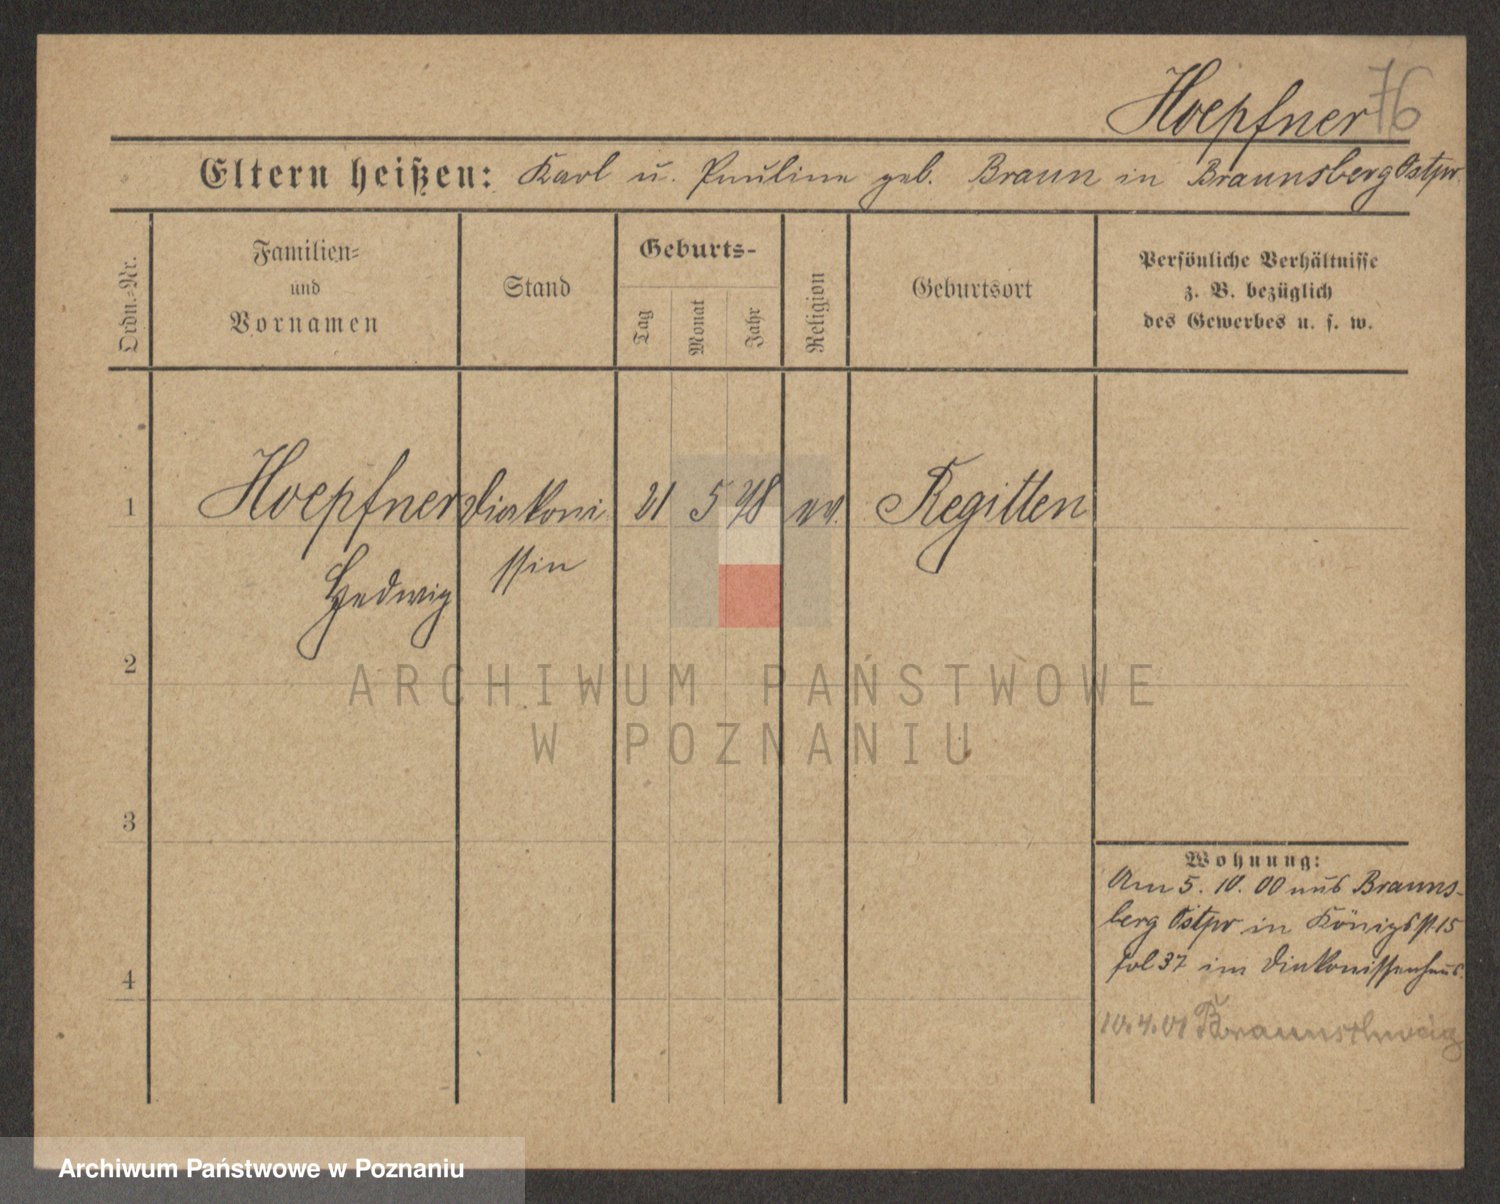 Hoepfner 76
Eltern heißen: Karl u. Pauline geb. Braun in Braunsberg Ostpr.
Ordn.-Nr.
Familien-
und
Vornamen
Stand
Geburts-
Tag
Monat
Jahr
Religion
Geburtsort
Persönliche Verhältnisse
z. B. bezüglich
des Gewerbes u. s. w.
1 Hoepfner Diakoni 21 5 78 ev. Regitten
Hedwig ssin
2
ARCHIWUM PAŃSTWOWE
W POZNANIU
3
Wohnung:
Am 5. 10. 00 aus Brauns-
berg Ostpr in Königsst. 15
fol 37 im Diakonissenhaus
4
10.4.01 Braunschweig
Archiwum Państwowe w Poznaniu